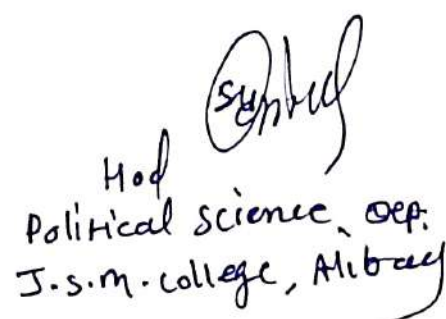 Hod
Political Science, Dep.
J.S.M. College, Alibag